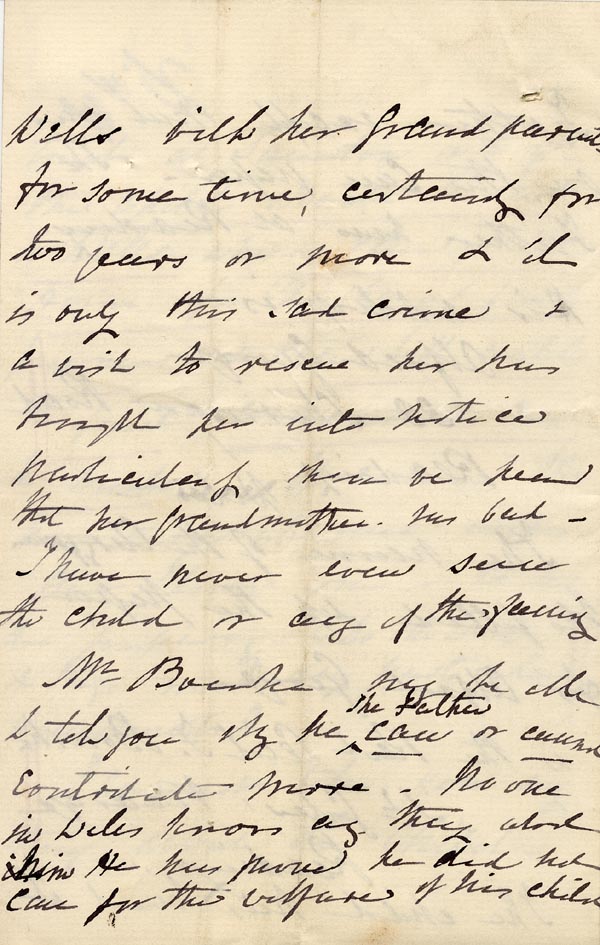 Wells with her Grand parents
for some time, certainly for
two years or more & it
is only this sad crime &
a wish to rescue her has
brought her into notice
particularly when we heard
that her grandmother was bad -
I have never even seen
the child or any of the family
Mr Bourke may be able
to tell you why he the Father can or cannot
contribute more - No one
in Wells knows any thing about
him He has proved he did not
care for the welfare of his child